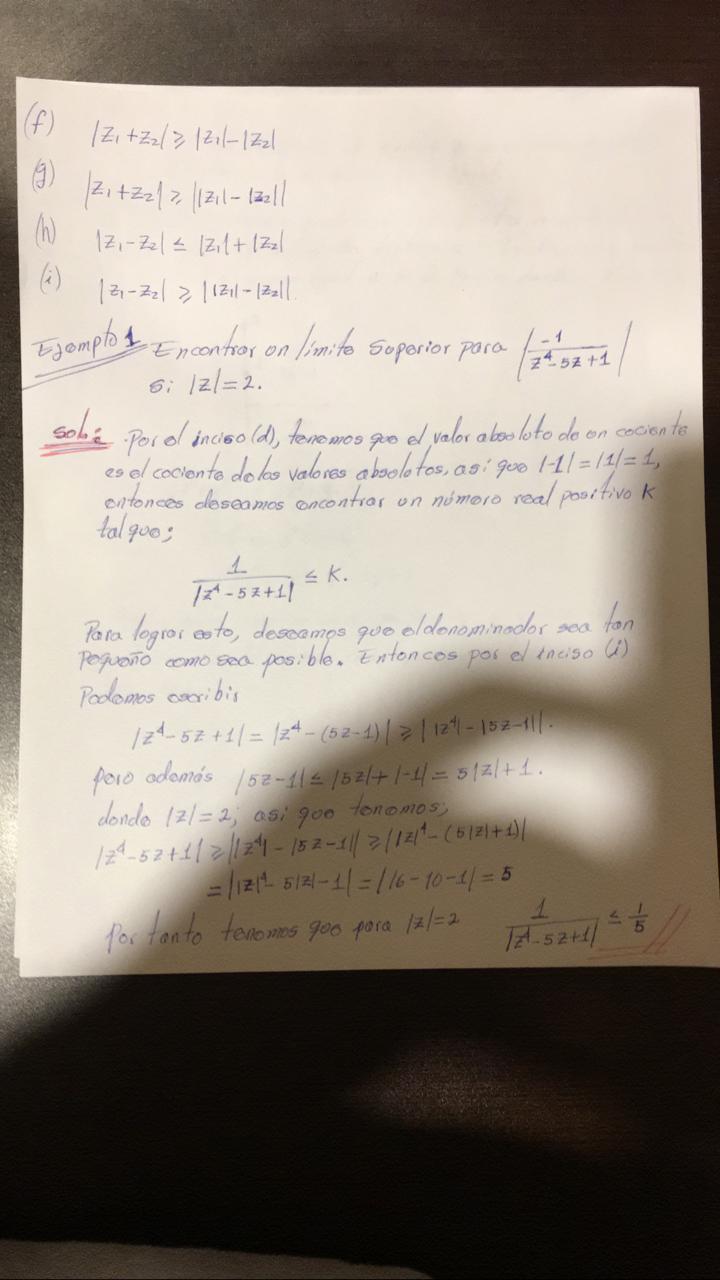 (f) |Z₁+Z₂| ≥ |Z₁|-|Z₂|
(g) |Z₁+Z₂| ≥ ||Z₁|-|Z₂||
(h) |Z₁-Z₂| ≤ |Z₁|+|Z₂|
(i) |Z₁-Z₂| ≥ ||Z₁|-|Z₂||
Ejemplo 1 Encontrar un límite superior para |-1/(Z⁴-5Z+1)|
si |Z|=2.
Sol: Por el inciso (d), tenemos que el valor absoluto de un cociente
es el cociente de los valores absolutos, así que |-1|=|1|=1,
entonces deseamos encontrar un número real positivo K
tal que;
1/|Z⁴-5Z+1| ≤ K.
Para lograr esto, deseamos que el denominador sea tan
pequeño como sea posible. Entonces por el inciso (i)
Podemos escribir
|Z⁴-5Z+1| = |Z⁴-(5Z-1)| ≥ ||Z⁴|-|5Z-1||.
pero además |5Z-1| ≤ |5Z|+|-1| = 5|Z|+1.
donde |Z|=2; asi que tenemos;
|Z⁴-5Z+1| ≥ ||Z⁴|-|5Z-1|| ≥ ||Z|⁴-(5|Z|+1)|
= ||Z|⁴-5|Z|-1| = |16-10-1| = 5
Por tanto tenemos que para |Z|=2 1/|Z⁴-5Z+1| ≤ 1/5